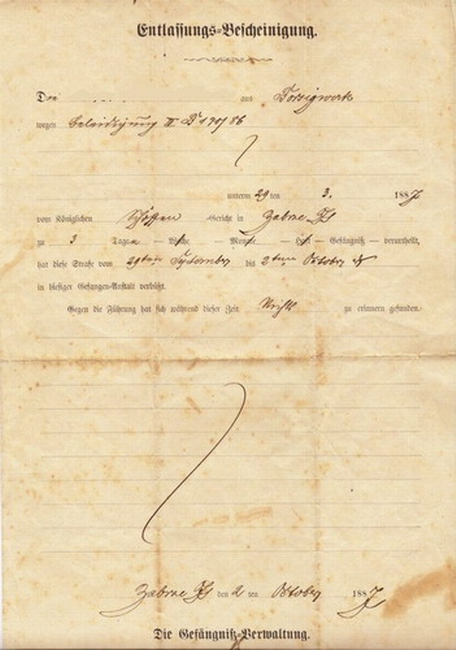 Entlassungs-Bescheinigung.
Der . . . . aus Borsigwerk
wegen Beleidigung II D 190/86
unterm 29 ten 3. 1887
vom Königlichen Schöffen Gericht in Zabrze
zu 3 Tagen — Woche — Monate — Haft — Gefängniß — verurtheilt,
hat diese Strafe vom 29ten September bis 2ten Oktober
in hiesiger Gefangen-Anstalt verbüßt.
Gegen die Führung hat sich während dieser Zeit Nichts zu erinnern gefunden.
Zabrze den 2 ten Oktober 1887
Die Gefängniß-Verwaltung.